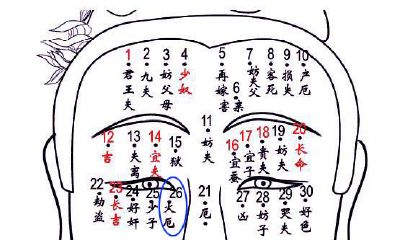 1 君王夫
2 九夫
3 妨父母
4 少奴
5 再嫁
6 亲害
7 妨夫父
8 客死
9 损夫
10 产厄
11 妨夫
12 吉
13 夫离
14 宜夫
15 狱
16 宜
17 宜子
18 贵夫
19 妨夫
20 长命
21 厄
22 劫盗
23 长吉
24 好奸
25 少子
26 火厄
27 凶
28 妨子
29 哭夫
30 好色